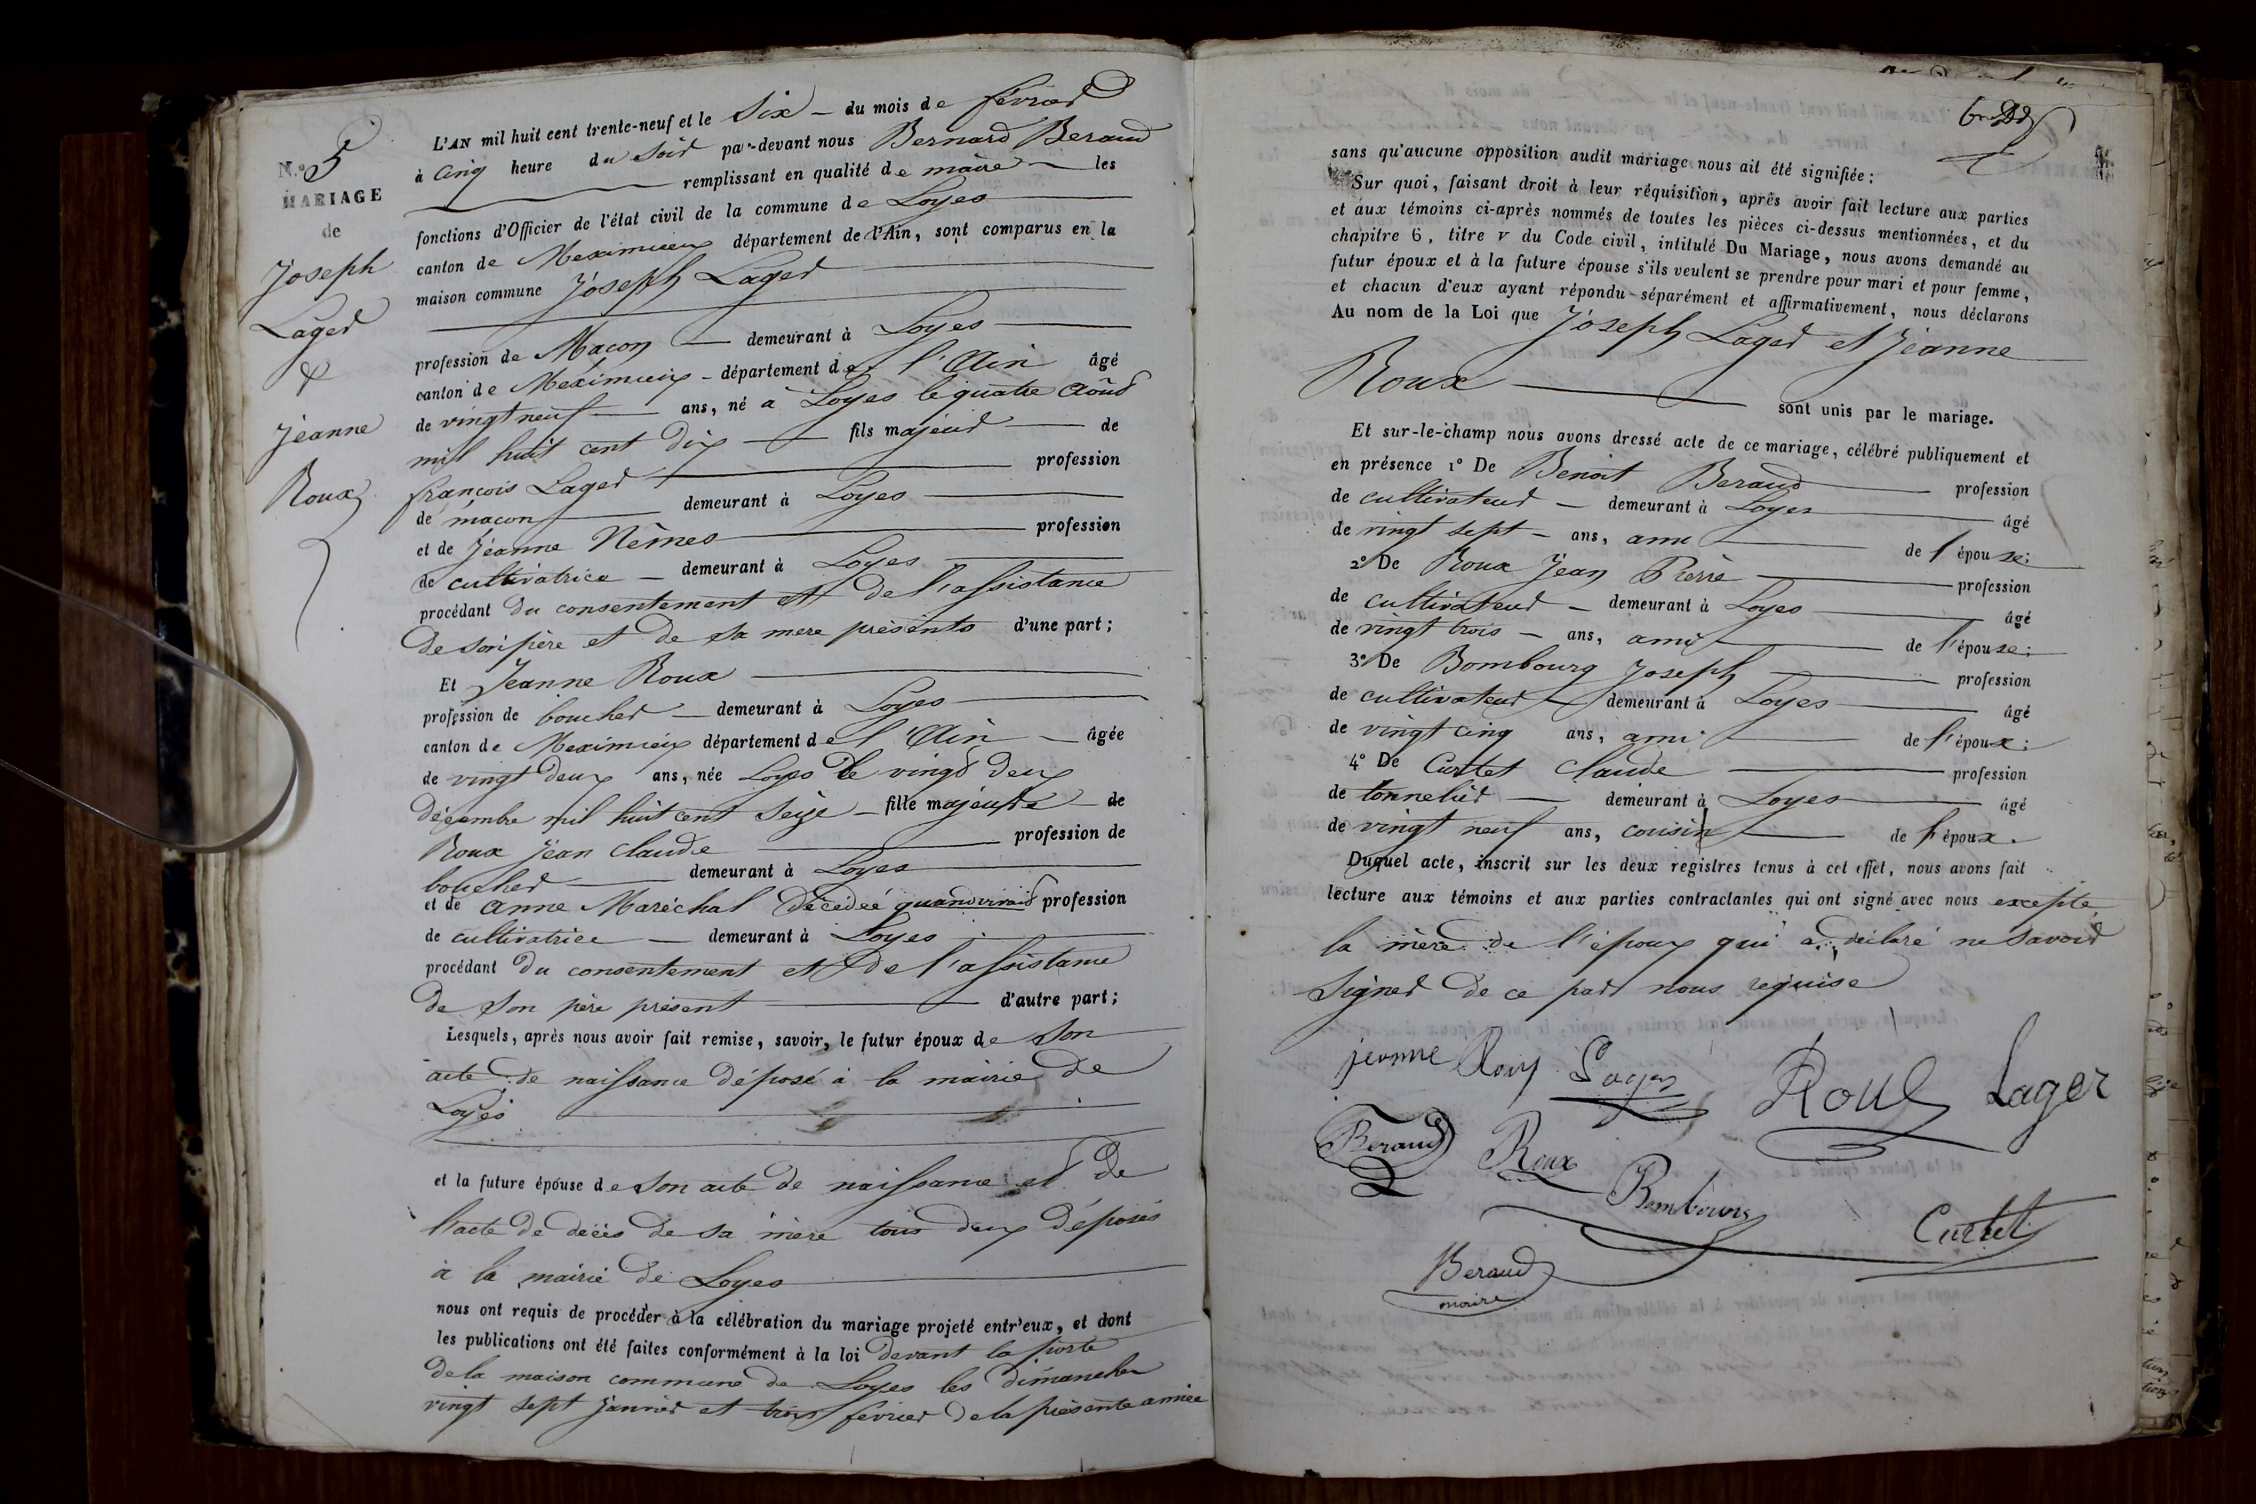 N.o 5
MARIAGE
de
Joseph
Lager
&
Jéanne
Roux
L'AN mil huit cent trente-neuf et le Six du mois de février
à cinq heure du soir par-devant nous Bernard Beraud
remplissant en qualité de maire les
fonctions d'Officier de l'état civil de la commune de Loyes
canton de Meximieux département de l'Ain, sont comparus en la
maison commune Joseph Lager
profession de Macon demeurant à Loyes
canton de Meximieux département de l'Ain âgé
de vingt neuf ans, né à Loyes le quatre Août
mil huit cent dix fils majeur de
françois Lager profession
de macon demeurant à Loyes
et de Jéanne Nêmes profession
de cultivatrice demeurant à Loyes
procédant du consentement et de l'assistance
de son père et de sa mere présents d'une part;
Et Jeanne Roux
profession de boucher demeurant à Loyes
canton de Meximieux département de l'Ain âgée
de vingt deux ans, née Loyes le vingt deux
décembre mil huit cent seize fille majeure de
Roux Jéan Claude profession de
boucher demeurant à Loyes
et de Anne Maréchal décédée quand vivait profession
de cultivatrice demeurant à Loyes
procédant du consentement et de l'assistance
de son père présent d'autre part;
Lesquels, après nous avoir fait remise, savoir, le futur époux de son
acte de naissance déposé à la mairie de
Loyes
et la future épouse de son acte de naissance et de
l'acte de décès de sa mère tous deux déposés
à la mairie de Loyes
nous ont requis de procéder à la célébration du mariage projeté entr'eux, et dont
les publications ont été faites conformément à la loi devant la porte
de la maison commune de Loyes les dimanches
vingt sept janvier et trois février de la présente année
sans qu'aucune opposition audit mariage nous ait été signifiée:
Sur quoi, faisant droit à leur réquisition, après avoir fait lecture aux parties
et aux témoins ci-après nommés de toutes les pièces ci-dessus mentionnées, et du
chapitre 6, titre v du Code civil, intitulé Du Mariage, nous avons demandé au
futur époux et à la future épouse s'ils veulent se prendre pour mari et pour femme,
et chacun d'eux ayant répondu séparément et affirmativement, nous déclarons
Au nom de la Loi que Joseph Lager et Jéanne
Roux
sont unis par le mariage.
Et sur-le-champ nous avons dressé acte de ce mariage, célébré publiquement et
en présence 1° De Benoit Beraud profession
de cultivateur demeurant à Loyes âgé
de vingt sept ans, ami de l'épouse;
2° De Roux Jean Pierre profession
de cultivateur demeurant à Loyes âgé
de vingt trois ans, ami de l'épouse;
3° De Bombourg Joseph profession
de cultivateur demeurant à Loyes âgé
de vingt cinq ans, ami de l'époux;
4° De Curtet Claude profession
de tonnelier demeurant à Loyes âgé
de vingt neuf ans, cousin de l'époux.
Duquel acte, inscrit sur les deux registres tenus à cet effet, nous avons fait
lecture aux témoins et aux parties contractantes qui ont signé avec nous excepté
la mère de l'époux qui a déclaré ne savoir
signer de ce part nous requise
jeanne Roux Lager Roux Lager
Beraud Roux
Bombourg
Curtet
Beraud
maire